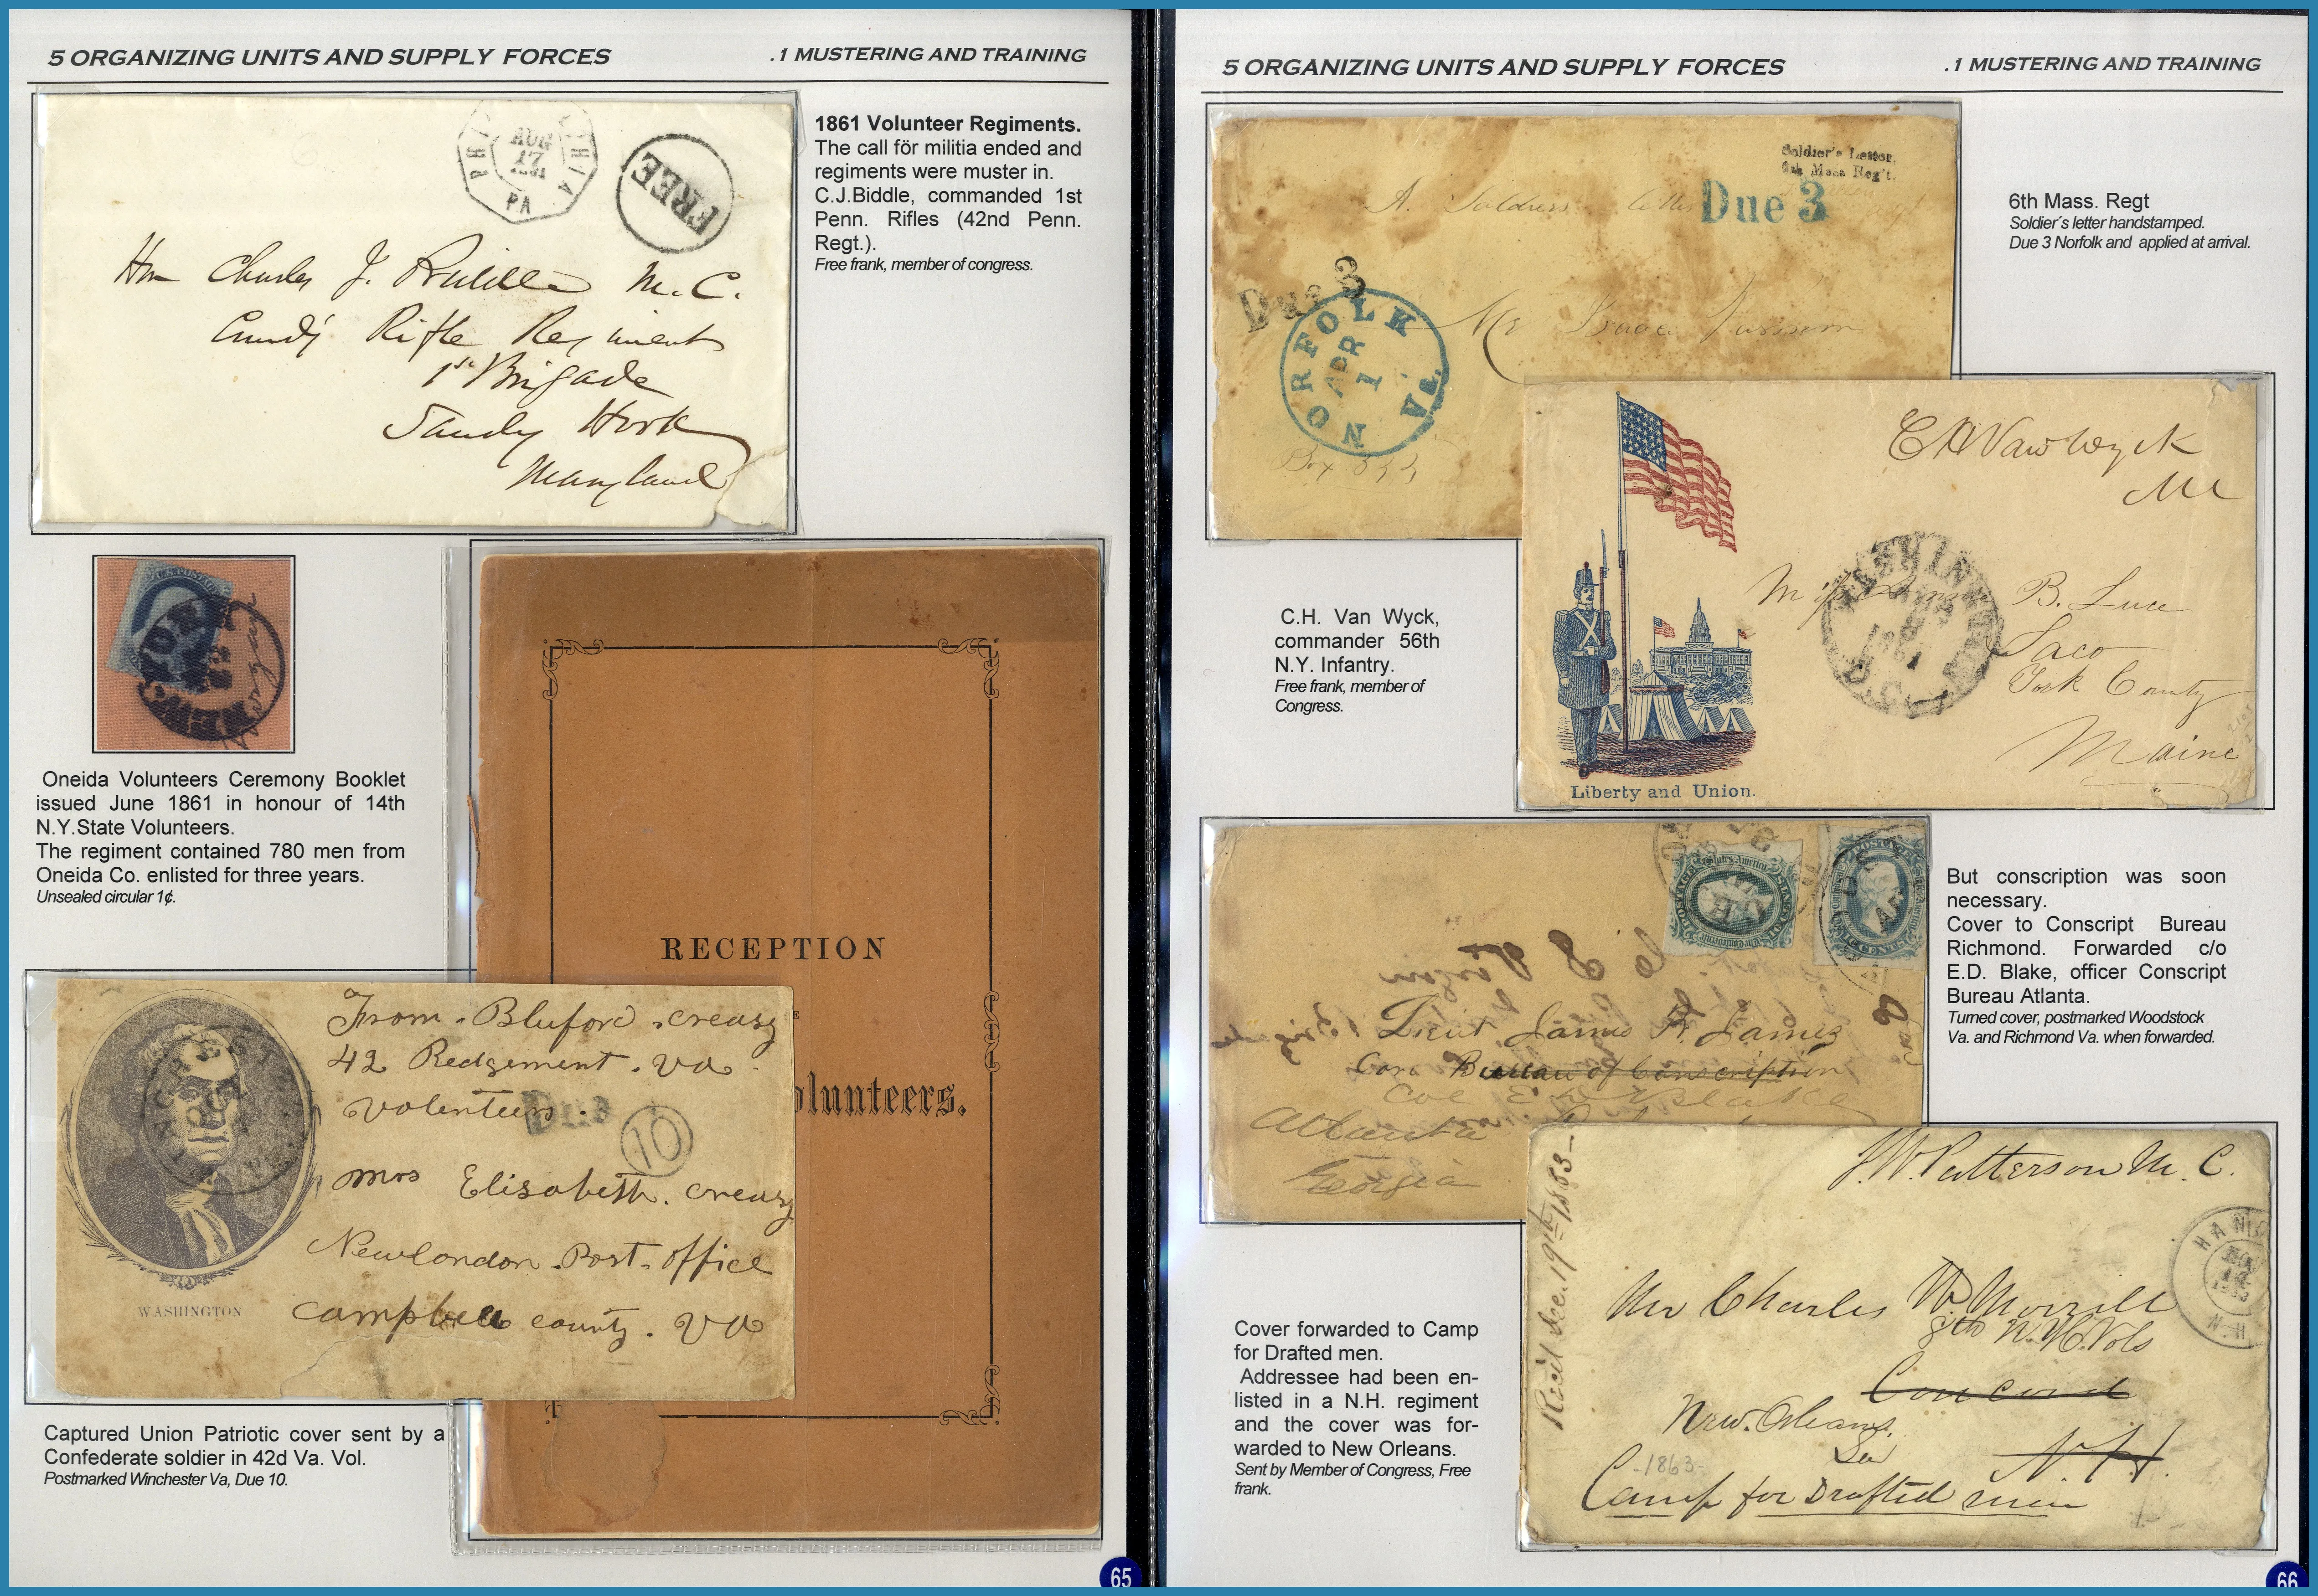 5 ORGANIZING UNITS AND SUPPLY FORCES
.1 MUSTERING AND TRAINING
AUG
17
1861
PA
FREE
Hon Charles J. Biddle M.C.
Rifle Regiment
1st Brigade
Sandy Hook
Maryland
1861 Volunteer Regiments.
The call för militia ended and
regiments were muster in.
C.J.Biddle, commanded 1st
Penn. Rifles (42nd Penn.
Regt.).
Free frank, member of congress.
U.S. POSTAGE
NEW-YORK
Oneida Volunteers Ceremony Booklet
issued June 1861 in honour of 14th
N.Y.State Volunteers.
The regiment contained 780 men from
Oneida Co. enlisted for three years.
Unsealed circular 1¢.
RECEPTION
olunteers.
From . Bluford . creasy
42 Redgement . va .
volenteers .
Due
10
mrs Elisabeth . creasy
Newlondon . Post . office
campbell county . va
WASHINGTON
Captured Union Patriotic cover sent by a
Confederate soldier in 42d Va. Vol.
Postmarked Winchester Va, Due 10.
65
5 ORGANIZING UNITS AND SUPPLY FORCES
.1 MUSTERING AND TRAINING
Soldier's Letter,
6th Mass Reg't.
A Soldiers letter
Due 3
Due 3
NORFOLK Va.
APR
1
Mr Isaac
Box
6th Mass. Regt
Soldier´s letter handstamped.
Due 3 Norfolk and applied at arrival.
C H Van Wyck
MC
WASHINGTON
1861
D.C.
Miss B. Luce
Saco
York County
Maine
Liberty and Union.
C.H. Van Wyck,
commander 56th
N.Y. Infantry.
Free frank, member of
Congress.
Lieut James R. James
Care Bureau of Conscription
Col E D Blake
Atlanta
Georgia
But conscription was soon
necessary.
Cover to Conscript Bureau
Richmond. Forwarded c/o
E.D. Blake, officer Conscript
Bureau Atlanta.
Turned cover, postmarked Woodstock
Va. and Richmond Va. when forwarded.
J.W. Patterson M.C.
HANO
N.H.
Rec'd Dec. 19th 1863-
Mr Charles W. Morrill
8th N.H. Vols
Concord
New. Orleans.
La
N.H.
-1863-
Camp for Drafted men
Cover forwarded to Camp
for Drafted men.
Addressee had been en-
listed in a N.H. regiment
and the cover was for-
warded to New Orleans.
Sent by Member of Congress, Free
frank.
66